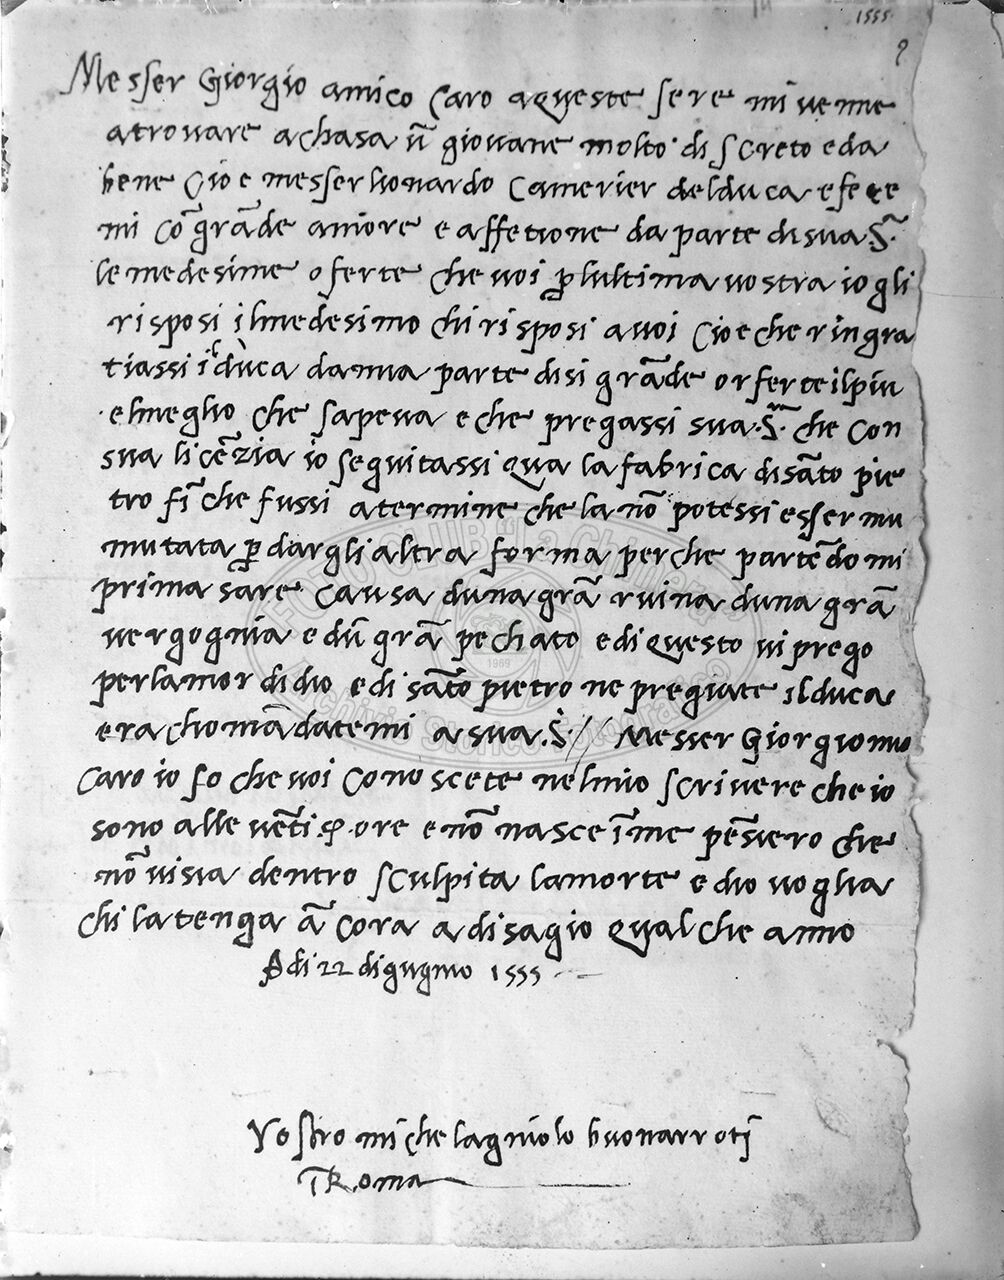 1555
Messer Giorgio amico caro a queste sere mi venne
a trovare a chasa ū giovane molto discreto e da
bene cioe messer lionardo camerier del duca e fece
mi cō grāde amore e affetione da parte di sua .S.
le medesime oferte che voi p̱ lultima vostra io gli
risposi il medesimo chi risposi a voi cioe che ringra
tiassi il duca da mia parte di si grāde oferte il piu
e l meglio che sapeva e che pregassi sua .S. che con
sua licēzia io seguitassi qua la fabrica di sāto pie
tro fī che fussi a termine che la nō potessi esser mu
mutata p̱ dargli altra forma perche partēdomi
prima sare causa duna grā ruina duna grā
vergognia e dū grā pechato e di questo vi prego
per lamor di dio e di sāto pietro ne pregiate il duca
e rachomādatemi a sua .S. // Messer giorgio mio
caro io so che voi conoscete nel mio scrivere che io
sono alle vēti 4 ore e nō nasce ī me pēsiero che
nō vi sia dentro sculpita la morte e dio voglia
chi la tenga ācora a disagio qualche anno
A di 22 di gugnio 1555
Vostro michelagniolo buonarroti
ī Roma
FOTO CLUB "La Chimera"
1969
Archivio Storico Fotografico